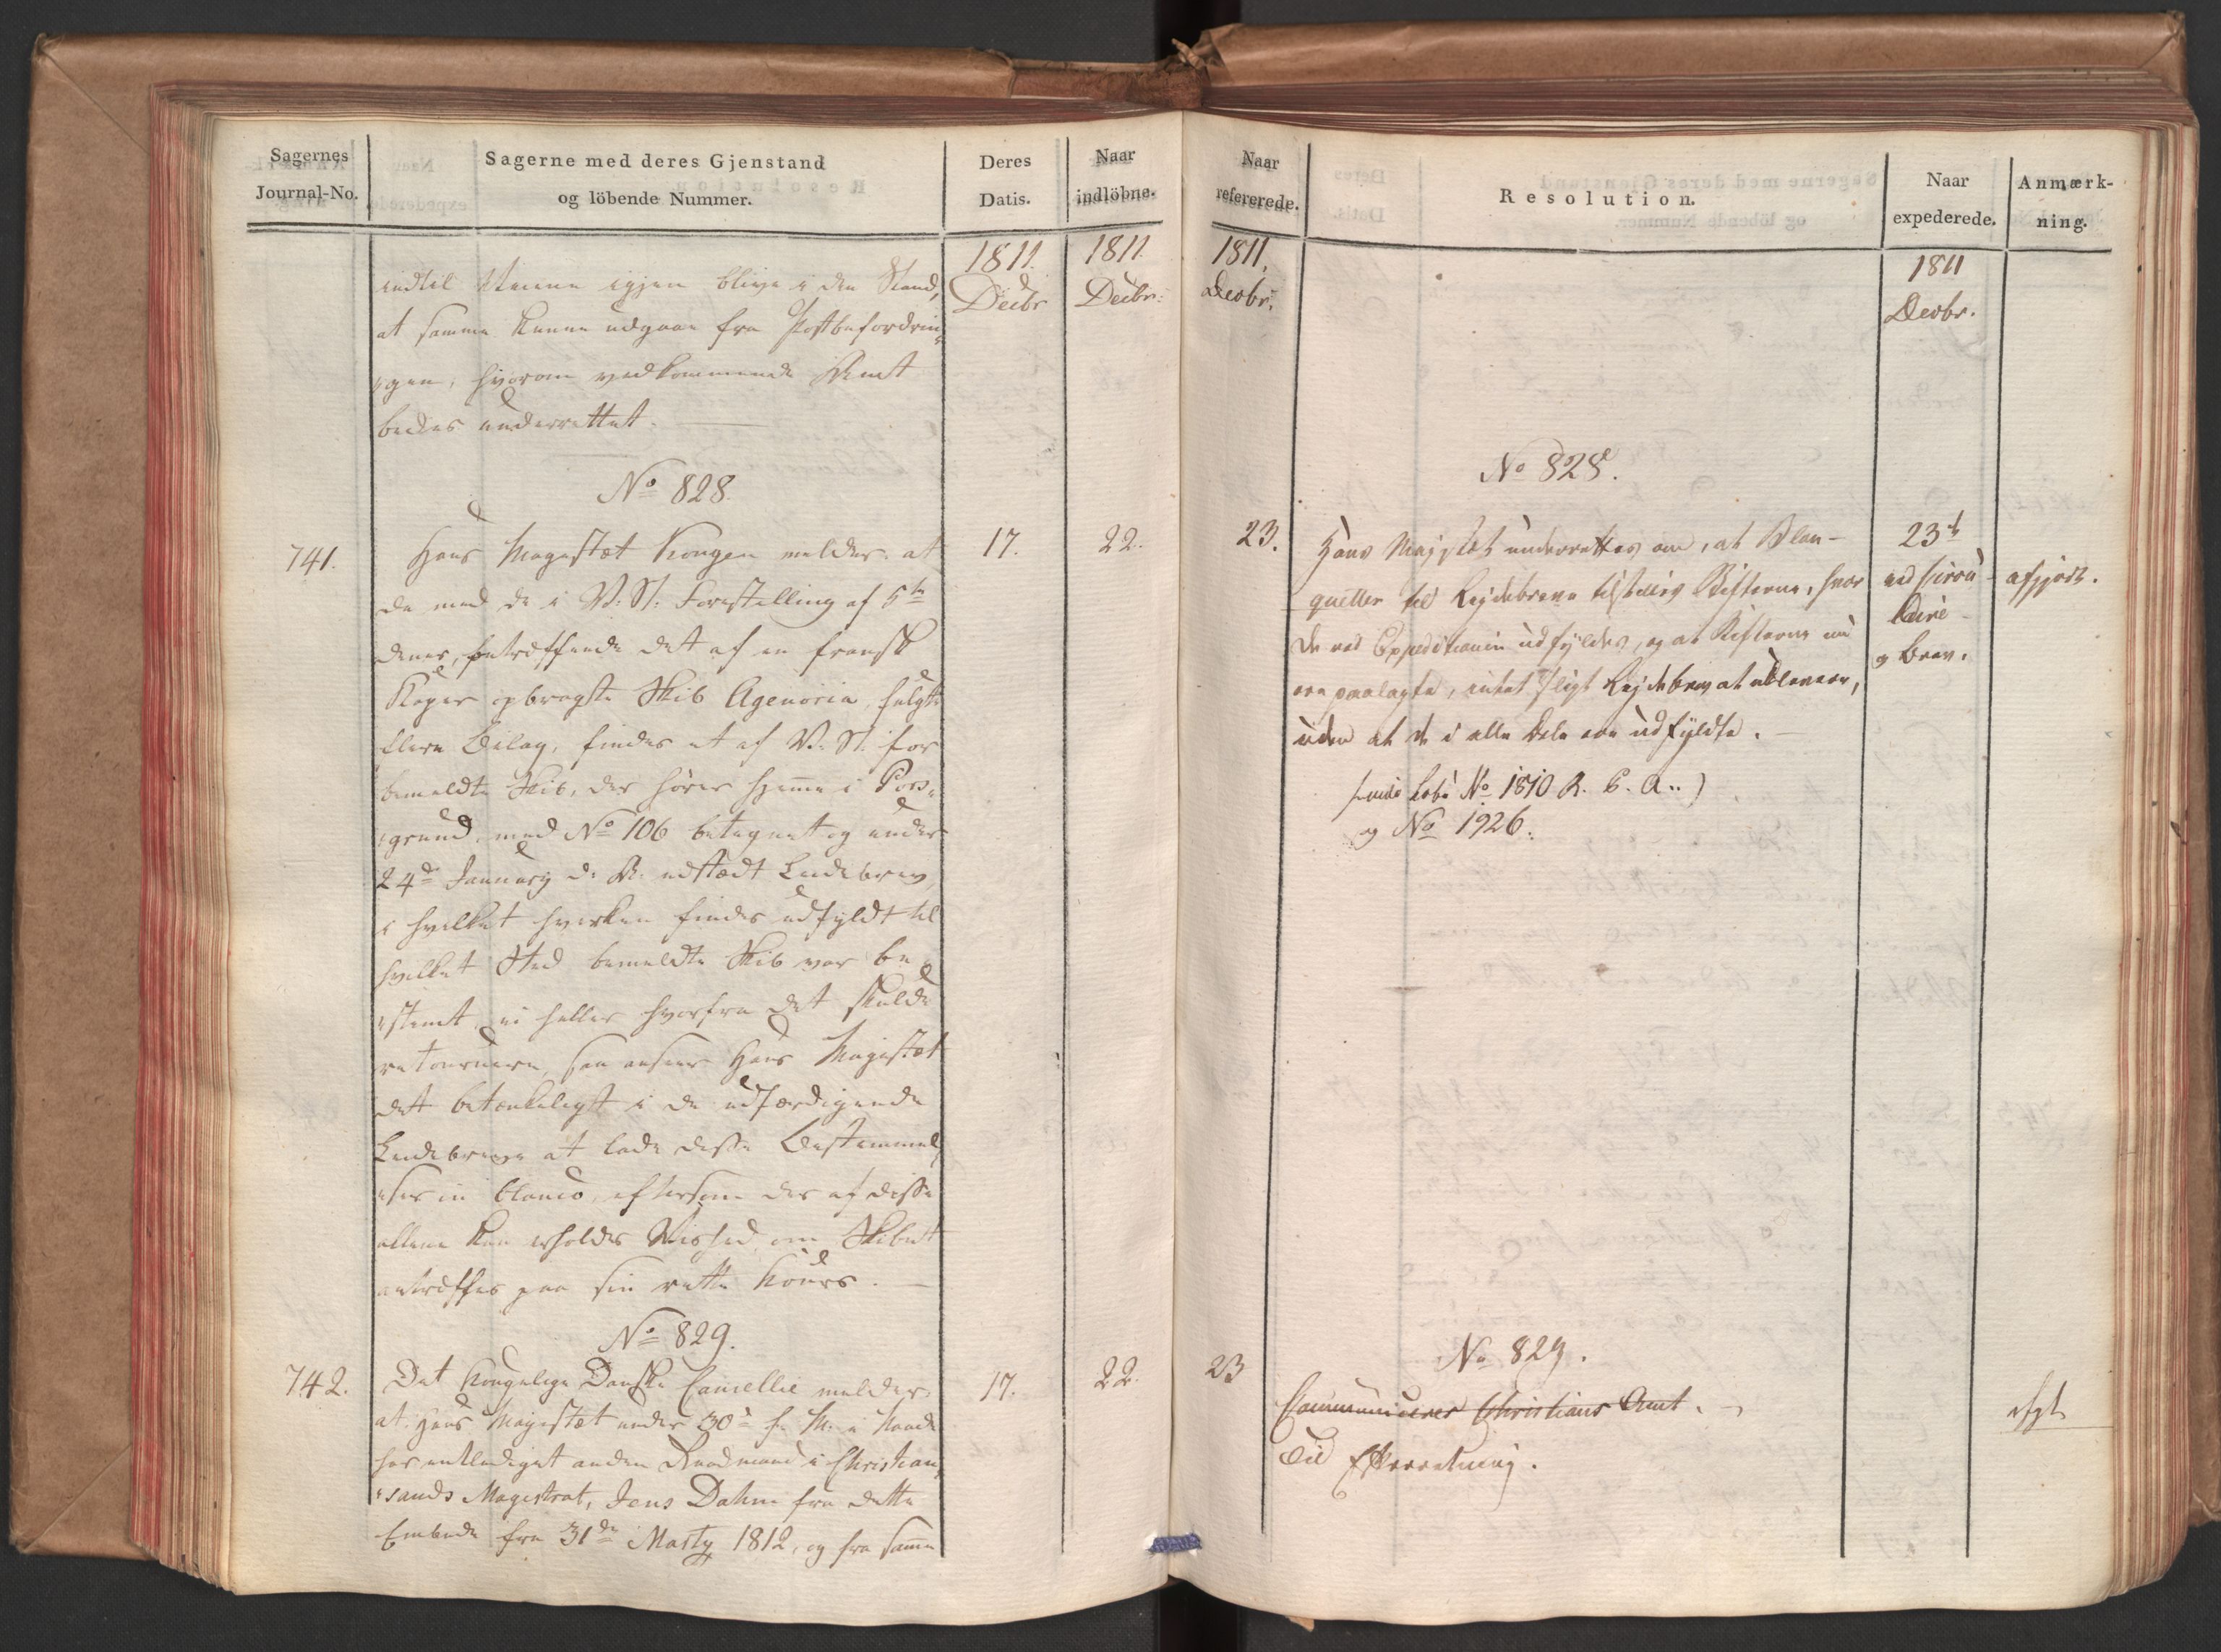 Sagernes
Journal-No.
Sagerne med deres Gjenstand
og löbende Nummer.
Deres
Datis.
Naar
indlöbne.
1811.
Decbr
1811
Decbr:
indtil Veiene igjen blive i den Stand,
at samme kunne udgaae fra Postbefordrin
gen, hvorom vedkommende Amt
bedes underrettet.
No 828.
741.
17.
22.
Hans Magestæt Kongen melder at
da med de i V: St: Forestilling af 5te
denes, betreffende det af en fransk
Kaper opbragte Skib Agenoria, fulgte
flere Bilag, findes et af V. St. for
bemeldte Skib, der hører hjemme i Pors-
grund, med No 106 betegnet og under
24de January d: A: udstædt Leidebrev,
i hvilket hverken findes udfyldt til
hvilket Sted bemeldte Skib var be
stemt, ei heller hvorfra det skulde
retournere, saa anseer Hans Magestæt
det betænkeligst i de udfærdigende
Leidebreve at lade disse Bestemmel
ser in blanco, eftersom der af disse
allene kan erholdes Vished om Skibet
antreffes paa sin rette Kours.
No 829.
742.
17.
22.
Det Kongelige Danske Cancellie melder
at Hans Majestæt under 30e f. M: i Naade
har entlediget anden Raadmand i Christian
sands Magistrat, Jens Dahm fra dette
Embede fra 31de Marty 1812, og fra samme
Naar
refererede.
Resolution.
Naar
expederede.
Anmærk-
ning.
1811,
Decbr.
1811
Decbr.
No 828.
23.
Hans Majestæt underrettes om, at Blan-
quetter til Lejdebreve tilstilles Stifterne, hvor
de ved Expeditionen udfyldes, og at Stifterne nu
ere paalagte, intet sligt Lejdebrev at udlevere,
uden at de i alle Dele ere udfyldte.
(vide No 1810 R. C. A..)
og No 1926.
23de
ved Circu-
laire
og Brev.
afgjort.
No 829.
23
Communiceres Christians Amt.
Til Efterretning.
afgt.